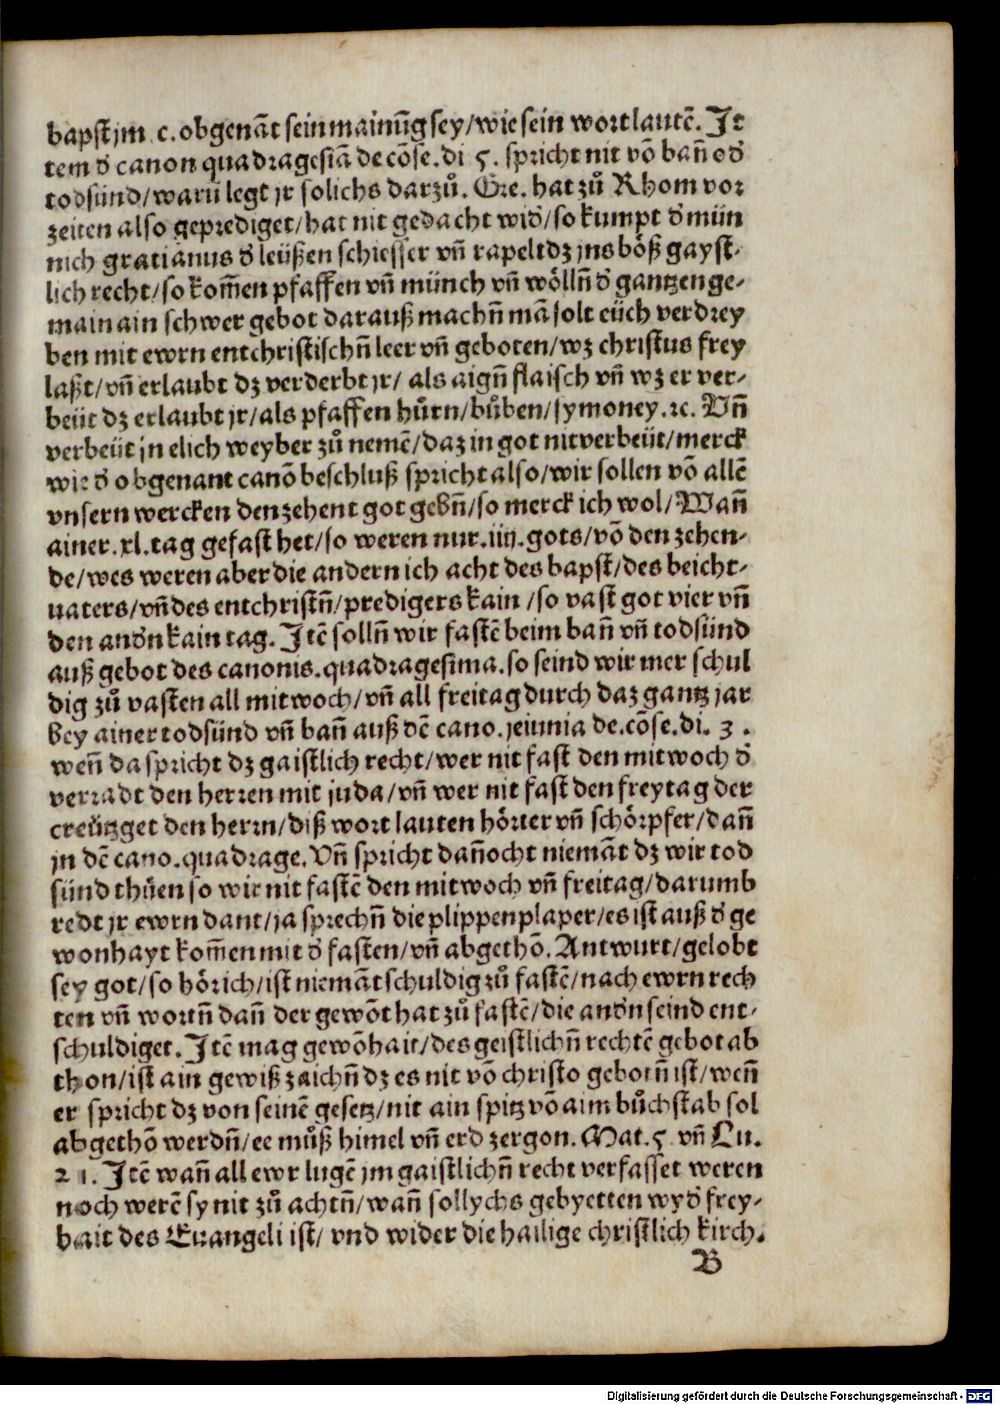 bapst jm c. obgenāt sein mainūg sey/wie sein wort lautē. It
tem d̄ canon quadragesiā de cōse. di 5. spricht nit vō bañ od̄
todsünd/warū legt jr solichs darzů. Gre. hat zů Rhom vor
zeiten also geprediget/hat nit gedacht wid̄/so kumpt d̄ mün
nich gratianus d̄ leüßen schiesser vñ rapelt dz jns böß gayst-
lich recht/so kom̄en pfaffen vñ münch vñ wöllñ d̄ gantzen ge-
main ain schwer gebot darauß machñ mā solt eüch verdrey
ben mit ewrn entchristischñ leer vñ geboten/wz christus frey
laßt/vñ erlaubt dz verderbt jr/ als aigñ flaisch vñ wz er ver-
beüt dz erlaubt jr/als pfaffen hůrn/bůben/symoney.ꝛc. Vñ
verbeüt jn elich weyber zů nemē/daz in got nit verbeüt/merck
wie d̄ obgenant canō beschluß spricht also/wir sollen vō allē
vnsern wercken den zehent got gebñ/so merck ich wol/Wañ
ainer.xl.tag gefast het/so weren nur.iiij.gots/vō den zehen-
de/wes weren aber die andern ich acht des bapst/des beicht-
uaters/vñ des entchristñ/predigers kain /so vast got vier vñ
den and̄n kain tag. Itē sollñ wir fastē beim bañ vñ todsünd
auß gebot des canonis.quadragesima.so seind wir mer schul
dig zů vasten all mitwoch/vñ all freitag durch daz gantz jar
bey ainer todsünd vñ bañ auß dē cano. jeiunia de.cōse.di. 3 .
weñ da spricht dz gaistlich recht/wer nit fast den mitwoch d̄
verradt den herren mit juda/vñ wer nit fast den freytag der
creützget den herrn/diß wort lauten hörter vñ schörpfer/dañ
jn dē cano.quadrage. Vñ spricht dañocht niemāt dz wir tod
sünd thüen so wir nit fastē den mitwoch vñ freitag/darumb
redt jr ewrn dant/ja sprechñ die plippenplaper/es ist auß d̄ ge
wonhayt kom̄en mit d̄ fasten/vñ abgethō. Antwurt/gelobt
sey got/so hör ich/ist niemāt schuldig zů fastē/nach ewrn rech
ten vñ wortñ dañ der gewōt hat zů fastē/die and̄n seind ent-
schuldiget. Itē mag gewōhait/des geistlichñ rechtē gebot ab
thon/ist ain gewiß zaichñ dz es nit vō christo gebotñ ist/weñ
er spricht dz von seinē gesetz/nit ain spitz vō aim bůchstab sol
abgethō werdñ/ee můß himel vñ erd zergon. Mat. 5 vñ Lu.
21. Itē wañ all ewr lugē jm gaistlichñ recht verfasset weren
noch werē sy nit zů achtñ/wañ sollychs gebyetten wyd̄ frey-
hait des Euangeli ist/ vnd wider die hailige christlich kirch.
B
Digitalisierung gefördert durch die Deutsche Forschungsgemeinschaft - DFG